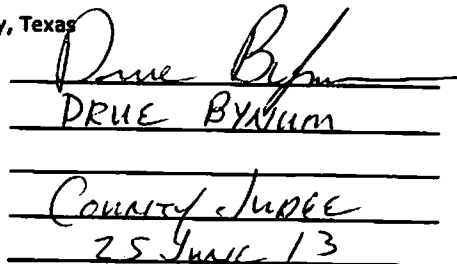 y, Texas
Drue Bynum
DRUE BYNUM
COUNTY JUDGE
25 JUNE 13